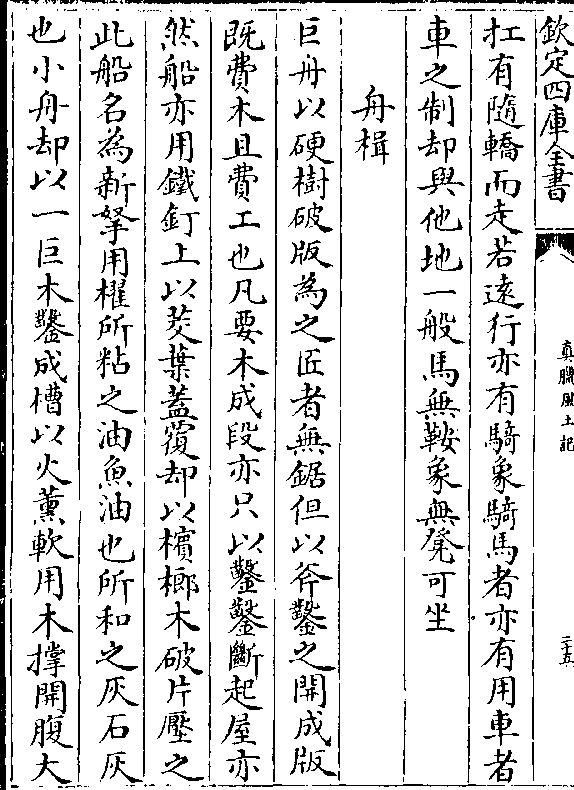 欽定四庫全書
真臘風土記
二十五
扛有隨轎而走若遠行亦有騎象騎馬者亦有用車者
車之制却與他地一般馬無鞍象無凳可坐
舟楫
巨舟以硬樹破版為之匠者無鋸但以斧鑿之開成版
既費木且費工也凡要木成段亦只以鑿鑿斷起屋亦
然船亦用鐵釘上以茭葉蓋覆却以檳榔木破片壓之
此船名為新拏用櫂所粘之油魚油也所和之灰石灰
也小舟却以一巨木鑿成槽以火薰軟用木撑開腹大